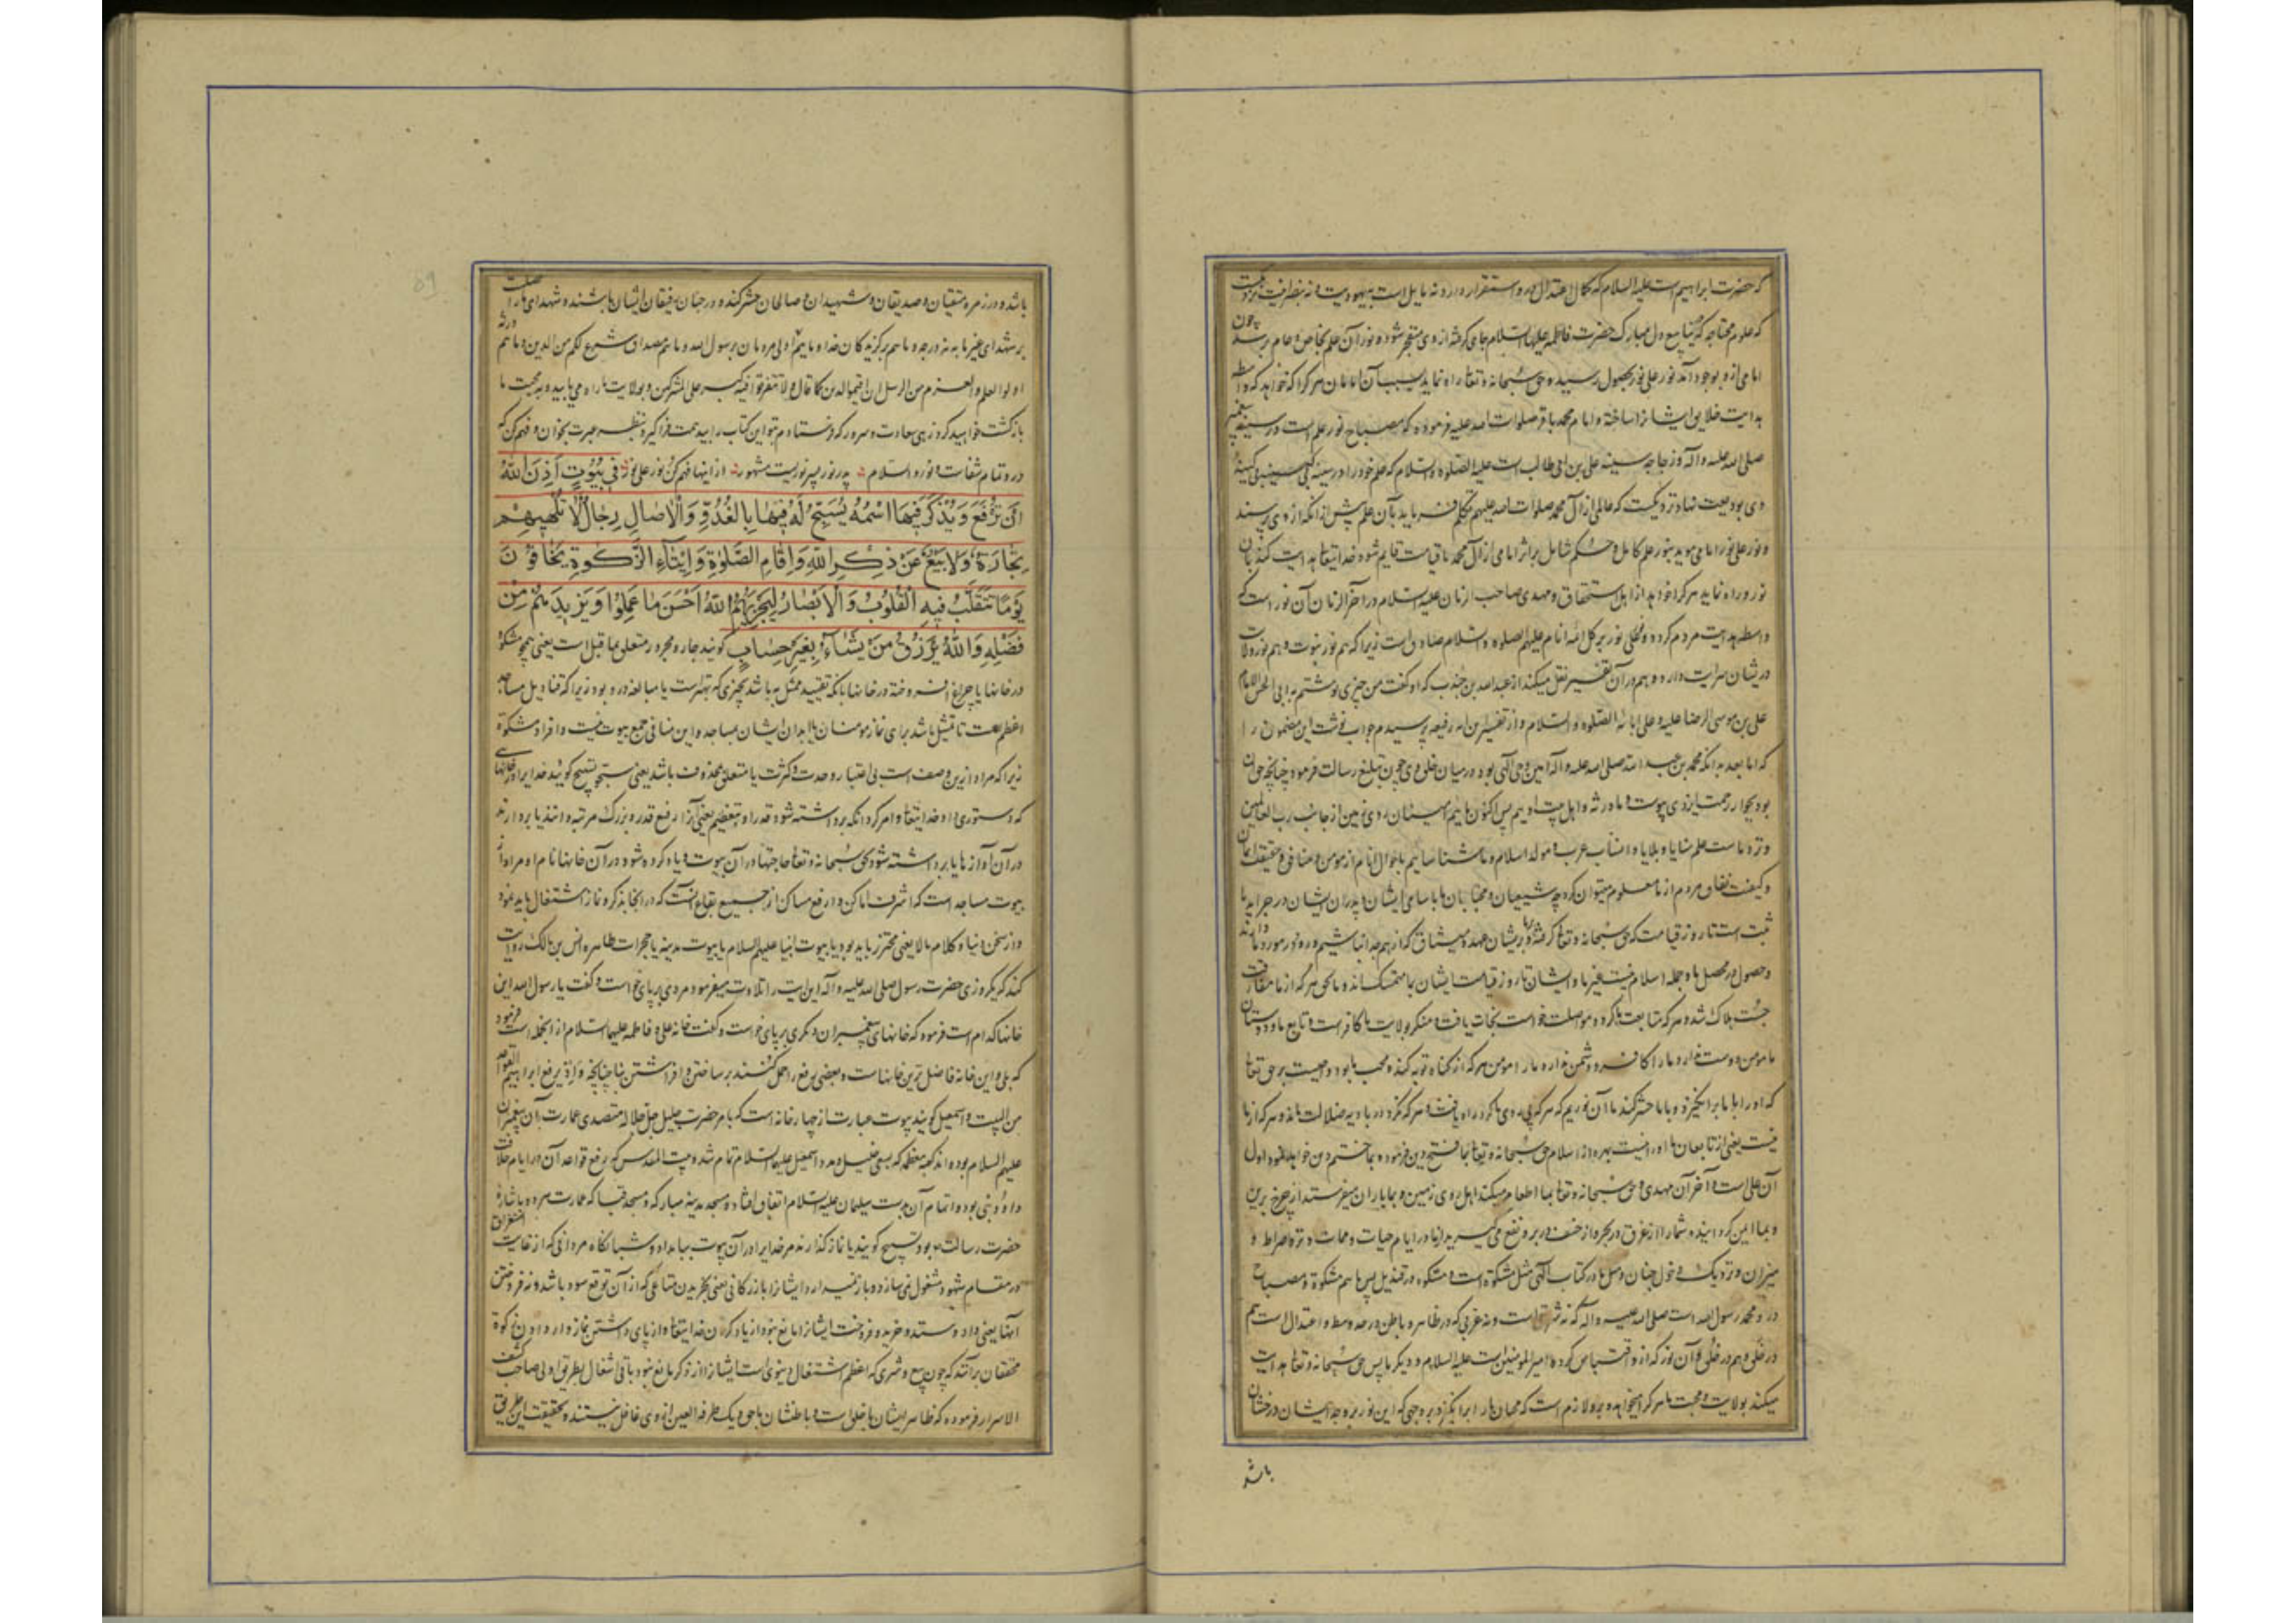 که حضرت ابراهیم است علیه السلام که کمال اعتدال در و استقرار دارد نه مایل است به یهودیت و نه بنصرانیت
که علوم محتاجه که ینابیع دل مبارک حضرت فاطمه علیها السلام جای گرفته از وی منفجر شود و نور آن علم بخاص و عام برسد چون
امامی ازو بوجود آید نور علی نور بحصول رسیده حق سبحانه و تعالی راه نماید بسبب آن امامان هر کرا که خواهد که واسطه
هدایت خلایق ایشانرا ساخته و امام محمد باقر صلوات الله علیه فرموده که مصباح نور علم است در سینه پیغمبر
صلی الله علیه و آله و زجاجه سینه علی بن ابی طالب است علیه الصلوه و السلام که علم خود را در سینه بی کینه
وی بودیعت نهاد نزدیکست که عالمی از آل محمد صلوات الله علیهم تکلم فرماید بآن علم پیش از آنکه از وی پرسند
و نور علی نور امامی موید بنور علم کامل و حکم شامل بر اثر امامی از آل محمد تا قیامت قایم شود خدایتعالی هدایت کند بآن
نور و راه نماید هر کرا خواهد از اهل استحقاق و مهدی صاحب الزمان علیه السلام در آخر الزمان آن نور است که
واسطه هدایت مردم گردد و تجلی نور بر کل ائمه انام علیهم الصلوه و السلام صادق است زیرا که هم نور نبوت و هم نور ولایت
در یشان سرایت دارد و هم در آن تفسیر نقل میکند از عبدالله بن جندب که او گفت من چیزی نوشتم به ابی الحسن الامام
علی بن موسی الرضا علیه و علی ابائه الصلوه و السلام و از تفسیر این ایه رفیعه پرسیدم جواب نوشت این مضمون را
که اما بعد بدانکه محمد بن عبد الله صلی الله علیه و آله امین وحی الهی بود در میان خلق وی چون تبلیغ رسالت فرمود چنانچه حق آن
بود بجوار رحمت ایزدی پیوست و ما ورثه و اهل بیت اوییم پس اکنون ماییم امینان روی زمین از جانب رب العالمین
و نزد ماست علم منایا و بلایا و انساب عرب و مولد اسلام و ما شناساییم باحوال انام از مومن و منافق و حقیقت ایمان
و کیفیت نفاق مردم از ما معلوم میتوان کرد چه شیعیان و محبان ما باسامی ایشان و پدران ایشان در جراید ما
ثبت است تا روز قیامت که حق سبحانه و تعالی گرفته بر ما و بریشان عهد و میثاق که از هم جدا نباشیم و ورود در مورد ما دارند
و حصول در محصل ما و جمله اسلام نیست غیر ما و ایشان تا روز قیامت ایشان بما متمسک‌اند و ما بحق هر که از ما مفارقت
جست هلاک شد و هر که متابعت ما کرد و مواصلت خواست نجات یافت و منکر ولایت ما کافر است و تابع ما و دوستان
ما مومن دوست ندارد ما را کافر و دشمن ندارد ما را مومن هر که از گناه توبه کند و محب ما بود واجبست بر حق تعالی
که او را با ما برانگیزد و با ما حشر کند ما آن نوریم که هر که پی روی ما کرد راه یافت و هر که نکرد در بادیه ضلالت ماند و هر که از ما
نیست یعنی از تابعان ما او را نیست بهره از اسلام حق سبحانه و تعالی بما فتح دین فرموده و بما ختم دین خواهد فرمود اول
آن علی است و آخر آن مهدی و حق سبحانه و تعالی بما اطعام میکند اهل روی زمین و بما باران میفرستد از چرخ برین
و بما ایمن گردانیده شما را از غرق در بحر و از خسف در بر و نفع می گیرید از ما در ایام حیات و ممات و نزد صراط و
میزان و نزدیک دخول جنان و مثل ما در کتاب الهی مثل مشکوة است و مشکوه در قندیل پس ماییم مشکوة و مصباح
درو محمد رسول الله است صلی الله علیه و آله که نه شرقی است و نه غربی که در ظاهر و باطن در حد وسط و اعتدال است هم
در خلق و هم در خلق و آن نور که ازو اقتباس کرده امیر المومنین است علیه السلام و دیگر ما پس حق سبحانه و تعالی هدایت
میکند بولایت و محبت ما هر کرا میخواهد و برو لازم است که محبان ما را برانگیزد بر وجهی که این نور بر وجه ایشان درخشان
باشد
باشد و در زمره متقیان و صدیقان و شهیدان و صالحان حشر کند و در جنان رفیقان ایشان باشند و شهدای ما را
بر شهدای غیر ما به نه درجه و ماییم برگزیدگان خدا و ماییم اولی مردمان برسول الله و ماییم مصداق شرع لکم من الدین و ماییم
اولوا العلم و العزم من الرسل ان اقیموا الدین کما قال و لا تتفرقوا فیه کبر علی المشرکین و بولایت ما راه می یابید و به محبت ما
بازگشت خواهید کرد زهی سعادت و سرور که فرستادم بتو این کتاب را بیدهمت فراگیر و بنظر عبرت بخوان و فهم کن که
درو تمام شفاست و نور و السلام پدر نور پسر نوریست مشهور از اینها فهم کن نور علی نور فِي بُيُوتٍ أَذِنَ اللَّهُ
أَنْ تُرْفَعَ وَيُذْكَرَ فِيهَا اسْمُهُ يُسَبِّحُ لَهُ فِيهَا بِالْغُدُوِّ وَالْآصَالِ رِجَالٌ لَا تُلْهِيهِمْ
تِجَارَةٌ وَلَا بَيْعٌ عَنْ ذِكْرِ اللَّهِ وَإِقَامِ الصَّلَوةِ وَإِيتَاءِ الزَّكَوةِ يَخَافُونَ
يَوْمًا تَتَقَلَّبُ فِيهِ الْقُلُوبُ وَالْأَبْصَارُ لِيَجْزِيَهُمُ اللَّهُ أَحْسَنَ مَا عَمِلُوا وَيَزِيدَهُمْ مِنْ
فَضْلِهِ وَاللَّهُ يَرْزُقُ مَنْ يَشَاءُ بِغَيْرِ حِسَابٍ گویند جار و مجرور متعلق بما قبل است یعنی همچو مشکوة
در خانها یا چراغ افروخته در خانها بانکه تقیید ممثل به باشد بچیزی که بهتر است یا مبالغه درو بود زیرا که قنادیل مساجد
اعظم است تا تمثیل باشد برای نماز مومنان یا ابدان ایشان بمساجد و این منافی جمع بیوت نیست و افراد مشکوة
زیرا که مراد ازین وصف است بی اعتبار وحدت و کثرت یا متعلق بمحذوف باشد یعنی سبحوا تسبیح گویید خدایرا در خانهای
که دستوری داد خدایتعالی و امر کرد آنکه برداشته شود قدر او بتعظیم یعنی آنرا رفیع قدر و بزرگ مرتبه دانند یا بردارند
در آن آواز ها یا برداشته شود بحق سبحانه و تعالی حاجتها در آن بیوت و یاد کرده شود در آن خانها نام او مراد از
بیوت مساجد است که اشرف اماکن و ارفع مساکن از جمیع بقاع آنست که در انجا بذکر و نماز اشتغال باید نمود
و از سخن دنیا و کلام مالا یعنی محترز باید بود یا بیوت انبیا علیهم السلام یا بیوت مدینه یا حجرات طاهره انس بن مالک روایت
کند که یکروزی حضرت رسول صلی الله علیه و آله این ایت را تلاوت میفرمود مردی بر پای خواست و گفت یا رسول الله این
خانها کدام است فرمود که خانهای پیغمبران دیگری بر پای خواست و گفت خانه علی و فاطمه علیهما السلام از انجمله است فرمود
که بلی و این خانه فاضل ترین خانهاست و بعضی رفع را حمل کنند بر ساختن و افراشتن بنا چنانچه وَ اِذ یرفع ابراهیم القواعد
من البیت و اسمعیل گویند بیوت عبارت از چهار خانه است که بامر حضرت جلیل جل جلاله متصدی عمارت آن پیغمبران
علیهم السلام بوده اند کعبه معظمه که بسعی خلیل و مدد اسمعیل علیهما السلام تمام شد و بیت المقدس که رفع قواعد آن در ایام خلافت
داوُد نبی بود و اتمام آن بدست سلیمان علیه السلام اتفاق افتاد و مسجد مدینه مبارکه و مسجد قبا که عمارت هر دو باشارهٔ
حضرت رسالت بود تسبیح گویند یا نماز گذارند مر خدایرا در آن بیوت ببامداد و شبانگاه مردانی که از غایت استغراق
در مقام شهود مشغول نمی سازد و باز نمیدارد ایشانرا بازرگانی یعنی بخریدن متاعی که از آن توقع سود باشد و نه فروختن
آنها یعنی داد و ستد و خرید و فروخت ایشانرا مانع نبود از یاد کردن خدایتعالی و از پای داشتن نماز و از دادن زکوة
محققان برآنند که چون بیع و شری که اعظم اشتغال دنیوی است ایشانرا از ذکر مانع نبود باقی اشغال بطریق اولی صاحب کشف
الاسرار فرموده که ظاهر ایشان با خلق است و باطنشان با حق و یک طرفه العین از وی غافل نیستند و حقیقت این طریق